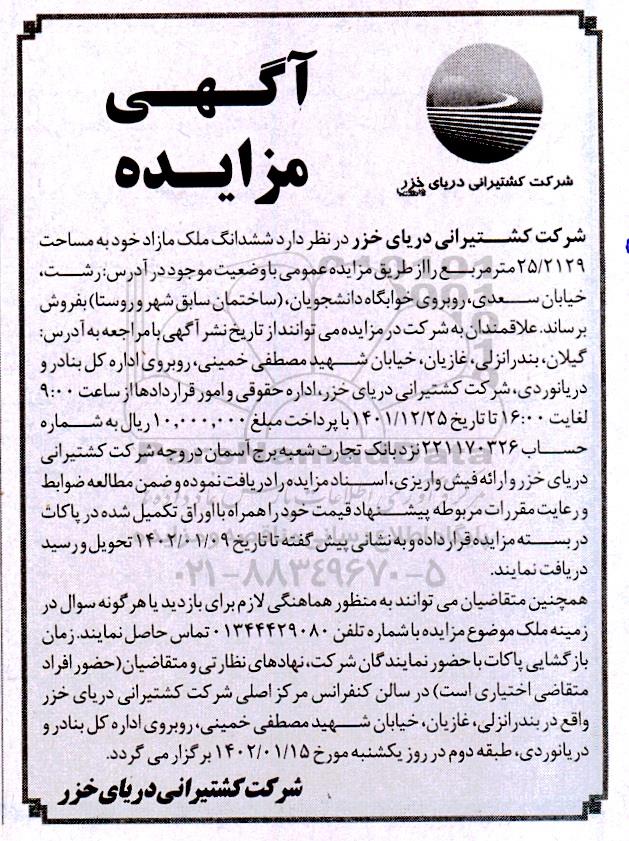 آگهی
مزایده
شرکت کشتیرانی دریای خزر
شرکت کشتیرانی دریای خزر در نظر دارد ششدانگ ملک مازاد خود به مساحت
۲۵/۲۱۲۹ مترمربع را از طریق مزایده عمومی با وضعیت موجود در آدرس: رشت،
خیابان سعدی، روبروی خوابگاه دانشجویان، (ساختمان سابق شهر و روستا) بفروش
برساند. علاقمندان به شرکت در مزایده می توانند از تاریخ نشر آگهی با مراجعه به آدرس:
گیلان، بندرانزلی، غازیان، خیابان شهید مصطفی خمینی، روبروی اداره کل بنادر و
دریانوردی، شرکت کشتیرانی دریای خزر، اداره حقوقی و امور قراردادها از ساعت ۹:۰۰
لغایت ۱۶:۰۰ تا تاریخ ۱۴۰۱/۱۲/۲۵ با پرداخت مبلغ ۱۰,۰۰۰,۰۰۰ ریال به شماره
حساب ۲۲۱۱۷۰۳۲۶ نزد بانک تجارت شعبه برج آسمان در وجه شرکت کشتیرانی
دریای خزر و ارائه فیش واریزی، اسناد مزایده را دریافت نموده و ضمن مطالعه ضوابط
و رعایت مقررات مربوطه پیشنهاد قیمت خود را همراه با اوراق تکمیل شده در پاکات
در بسته مزایده قرار داده و به نشانی پیش گفته تا تاریخ ۱۴۰۲/۰۱/۰۹ تحویل و رسید
دریافت نمایند.
همچنین متقاضیان می توانند به منظور هماهنگی لازم برای بازدید یا هر گونه سوال در
زمینه ملک موضوع مزایده با شماره تلفن ۰۱۳۴۴۴۲۹۰۸۰ تماس حاصل نمایند. زمان
بازگشایی پاکات با حضور نمایندگان شرکت، نهادهای نظارتی و متقاضیان (حضور افراد
متقاضی اختیاری است) در سالن کنفرانس مرکز اصلی شرکت کشتیرانی دریای خزر
واقع در بندرانزلی، غازیان، خیابان شهید مصطفی خمینی، روبروی اداره کل بنادر و
دریانوردی، طبقه دوم در روز یکشنبه مورخ ۱۴۰۲/۰۱/۱۵ برگزار می گردد.
شرکت کشتیرانی دریای خزر
ParsNamadData
۰۲۱-۸۸۳۴۹۶۷۰-۵